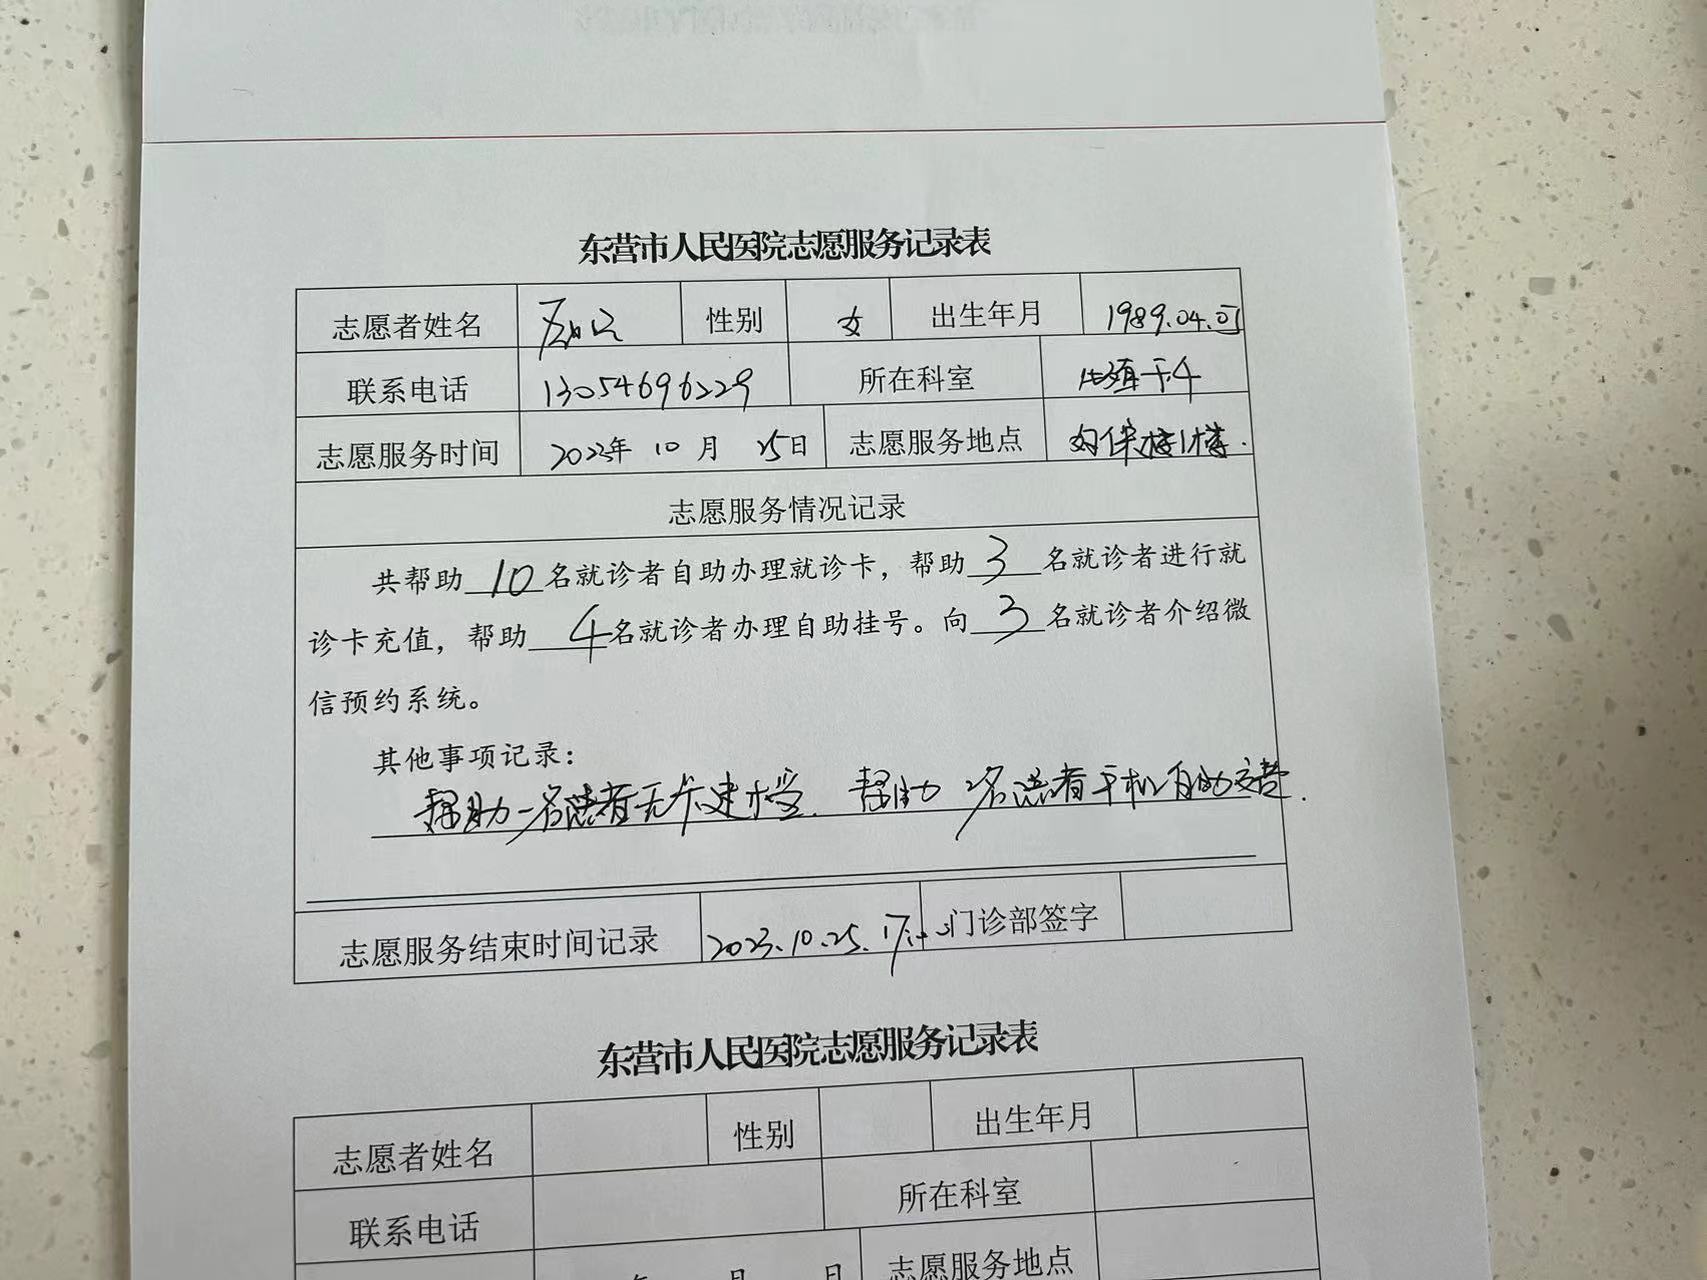 东营市人民医院志愿服务记录表
志愿者姓名 性别 女 出生年月 1989.04.
联系电话 13054696229 所在科室
志愿服务时间 2023年 10 月 25日 志愿服务地点 妇保楼1楼.
志愿服务情况记录
共帮助 10 名就诊者自助办理就诊卡，帮助 3 名就诊者进行就
诊卡充值，帮助 4 名就诊者办理自助挂号。向 3 名就诊者介绍微
信预约系统。
其他事项记录：
帮助一名患者无卡建档. 帮助 2名患者手机自助交费.
志愿服务结束时间记录 2023.10.25. 门诊部签字
东营市人民医院志愿服务记录表
志愿者姓名 性别 出生年月
联系电话 所在科室
年 月 日 志愿服务地点